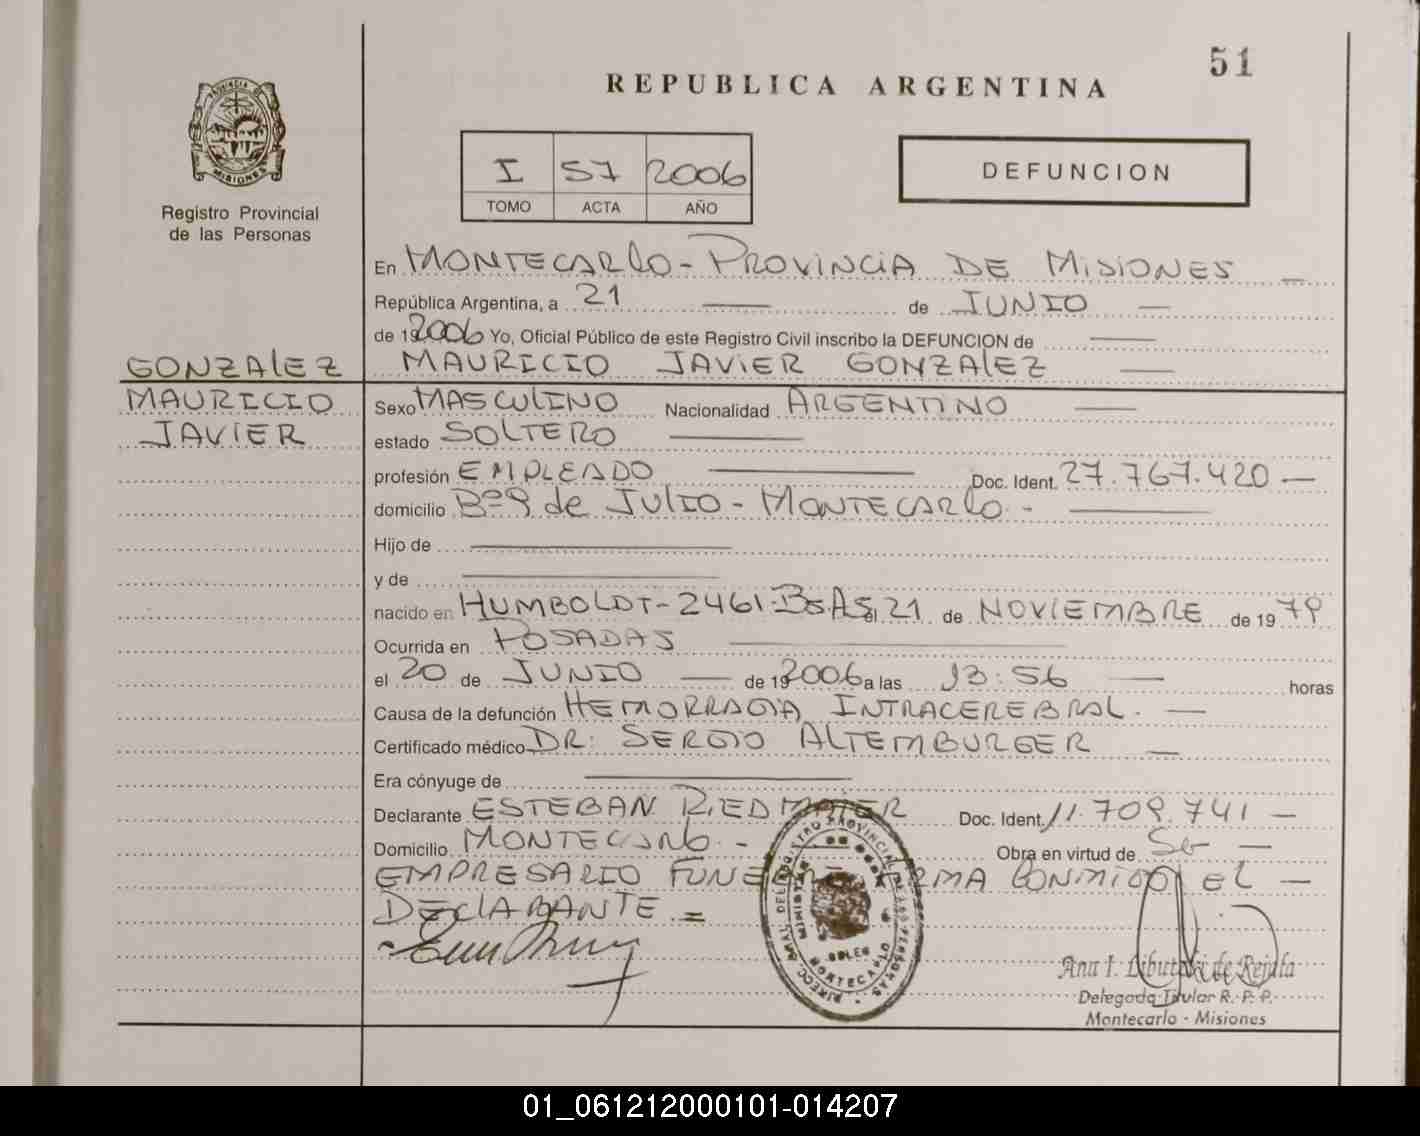 51
REPUBLICA ARGENTINA
PROVINCIA DE
MISIONES
Registro Provincial
de las Personas
I 57 2006
TOMO ACTA AÑO
DEFUNCION
En MONTECARLO - PROVINCIA DE MISIONES
República Argentina, a 21 de JUNIO
de 192006 Yo, Oficial Público de este Registro Civil inscribo la DEFUNCION de
GONZALEZ MAURICIO JAVIER GONZALEZ
MAURICIO Sexo MASCULINO Nacionalidad ARGENTINO
JAVIER estado SOLTERO
profesión EMPLEADO Doc. Ident. 27.767.420
domicilio Bº 9 de JULIO - MONTECARLO -
Hijo de
y de
nacido en HUMBOLDT - 2461. Bs. As. el 21 de NOVIEMBRE de 1979
Ocurrida en POSADAS
el 20 de JUNIO de 192006 a las 13:56 horas
Causa de la defunción HEMORRAGIA INTRACEREBRAL.
Certificado médico DR: SERGIO ALTEMBURGER
Era cónyuge de
Declarante ESTEBAN RIEDMAIER Doc. Ident. 11.709.741
Domicilio MONTECARLO - Obra en virtud de Se
EMPRESARIO FIRMA CONMIGO EL
DECLARANTE =
MONTECARLO
Ana I. de Rejala
Delegada Titular R. P. P.
Montecarlo - Misiones
01_061212000101-014207